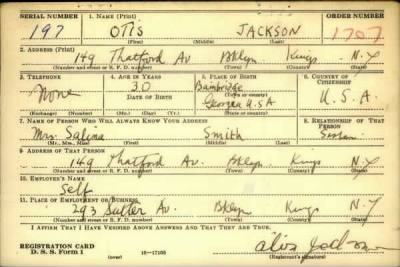 SERIAL NUMBER 1. NAME (Print) ORDER NUMBER
197 OTIS JACKSON 1707
(First) (Middle) (Last)
2. ADDRESS (Print)
149 Thatford Av Bklyn Kings N.Y
(Number and street or R. F. D. number) (Town) (County) (State)
3. TELEPHONE 4. AGE IN YEARS 5. PLACE OF BIRTH 6. COUNTRY OF CITIZENSHIP
None 30 Bambridge
DATE OF BIRTH (Town or county)
Georgia U.S.A U.S.A.
(Exchange) (Number) (Mo.) (Day) (Yr.) (State or country)
7. NAME OF PERSON WHO WILL ALWAYS KNOW YOUR ADDRESS 8. RELATIONSHIP OF THAT PERSON
Mrs. Salina Smith Sister
(Mr., Mrs., Miss) (First) (Middle) (Last)
9. ADDRESS OF THAT PERSON
149 Thatford Av. Bklyn Kings N.Y
(Number and street or R. F. D. number) (Town) (County) (State)
10. EMPLOYER'S NAME
Self
11. PLACE OF EMPLOYMENT OR BUSINESS
293 Sutter Av Bklyn Kings N.Y
(Number and street or R. F. D. number) (Town) (County) (State)
I AFFIRM THAT I HAVE VERIFIED ABOVE ANSWERS AND THAT THEY ARE TRUE.
REGISTRATION CARD
D. S. S. Form 1 16-17105
(over) (Registrant's signature)